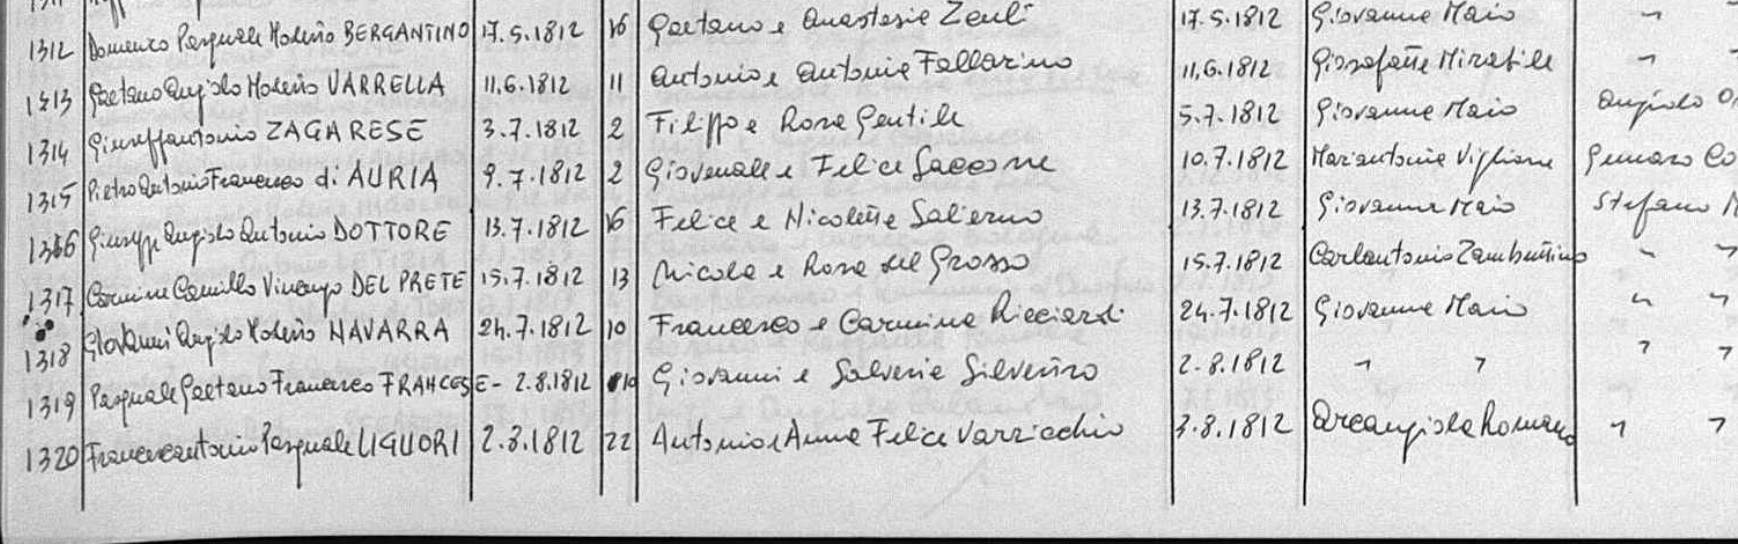 1312 Domenico Pasquale Modesto BERGANTINO 17.5.1812 16 Gaetano e Anastasia Zeuli 17.5.1812 Giovanna Maio " "
1313 Gaetano Angiolo Modesto VARRELLA 11.6.1812 11 Antonio e Antonia Fallarino 11.6.1812 Giosafatte Mirabile " "
1314 Giuseffantonio ZAGARESE 3.7.1812 2 Filippo e Rosa Gentile 5.7.1812 Giovanna Maio Angiolo
1315 Pietro Antonio Francesco di AURIA 9.7.1812 2 Giovenale e Felice Saccone 10.7.1812 Mariantonia Viglione Gennaro Co
1316 Giuseppe Angiolo Antonio DOTTORE 13.7.1812 16 Felice e Nicoletta Salierno 13.7.1812 Giovanna Maio Stefano M
1317 Carmine Camillo Vincenzo DEL PRETE 15.7.1812 13 Nicola e Rosa del Grosso 15.7.1812 Carlantonio Zambuttino " "
1318 Giovanni Angiolo Modesto NAVARRA 24.7.1812 10 Francesco e Carmina Ricciardi 24.7.1812 Giovanna Maio " "
1319 Pasquale Gaetano Francesco FRANCESE - 2.8.1812 10 Giovanni e Salveria Silvestro 2.8.1812 " " " "
1320 Francescantonio Pasquale LIGUORI 2.8.1812 22 Antonio e Anna Felice Varricchio 3.8.1812 Arcangiola Romano " "